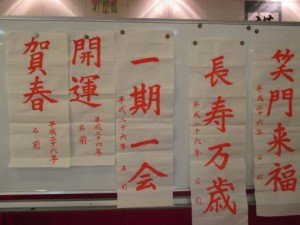 笑門来福
平成二十六年
名前
長寿万歳
平成二十六年
名前
一期一会
平成二十六年
名前
開運
平成二十六年
名前
賀春
平成二十六年
名前